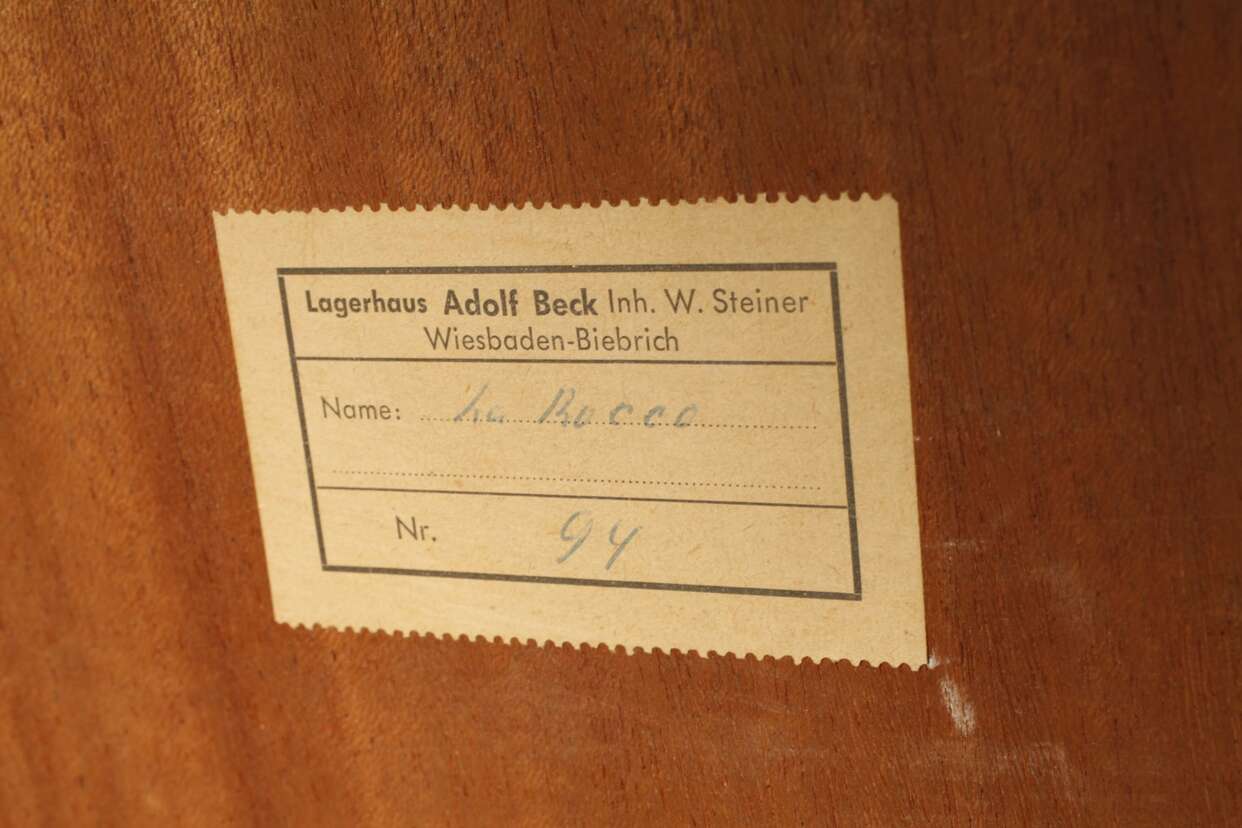 Lagerhaus Adolf Beck Inh. W. Steiner
Wiesbaden-Biebrich
Name: Rocco
Nr. 94